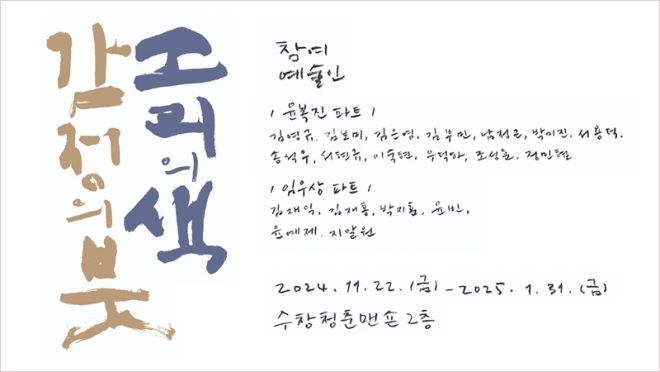 감정의 붓
소리의 색
참여
예술인
/ 윤복진 파트 /
김영규, 김보미, 김은영, 김부민, 남정근, 박미진, 서용덕,
송석우, 서현규, 이숙현, 우덕하, 조성윤, 정민철
/ 임우상 파트 /
김재익, 김재홍, 박지훈, 윤빈,
윤예제, 지알원
2024. 11. 22. (금) - 2025. 1. 31. (금)
수창청춘맨숀 2층